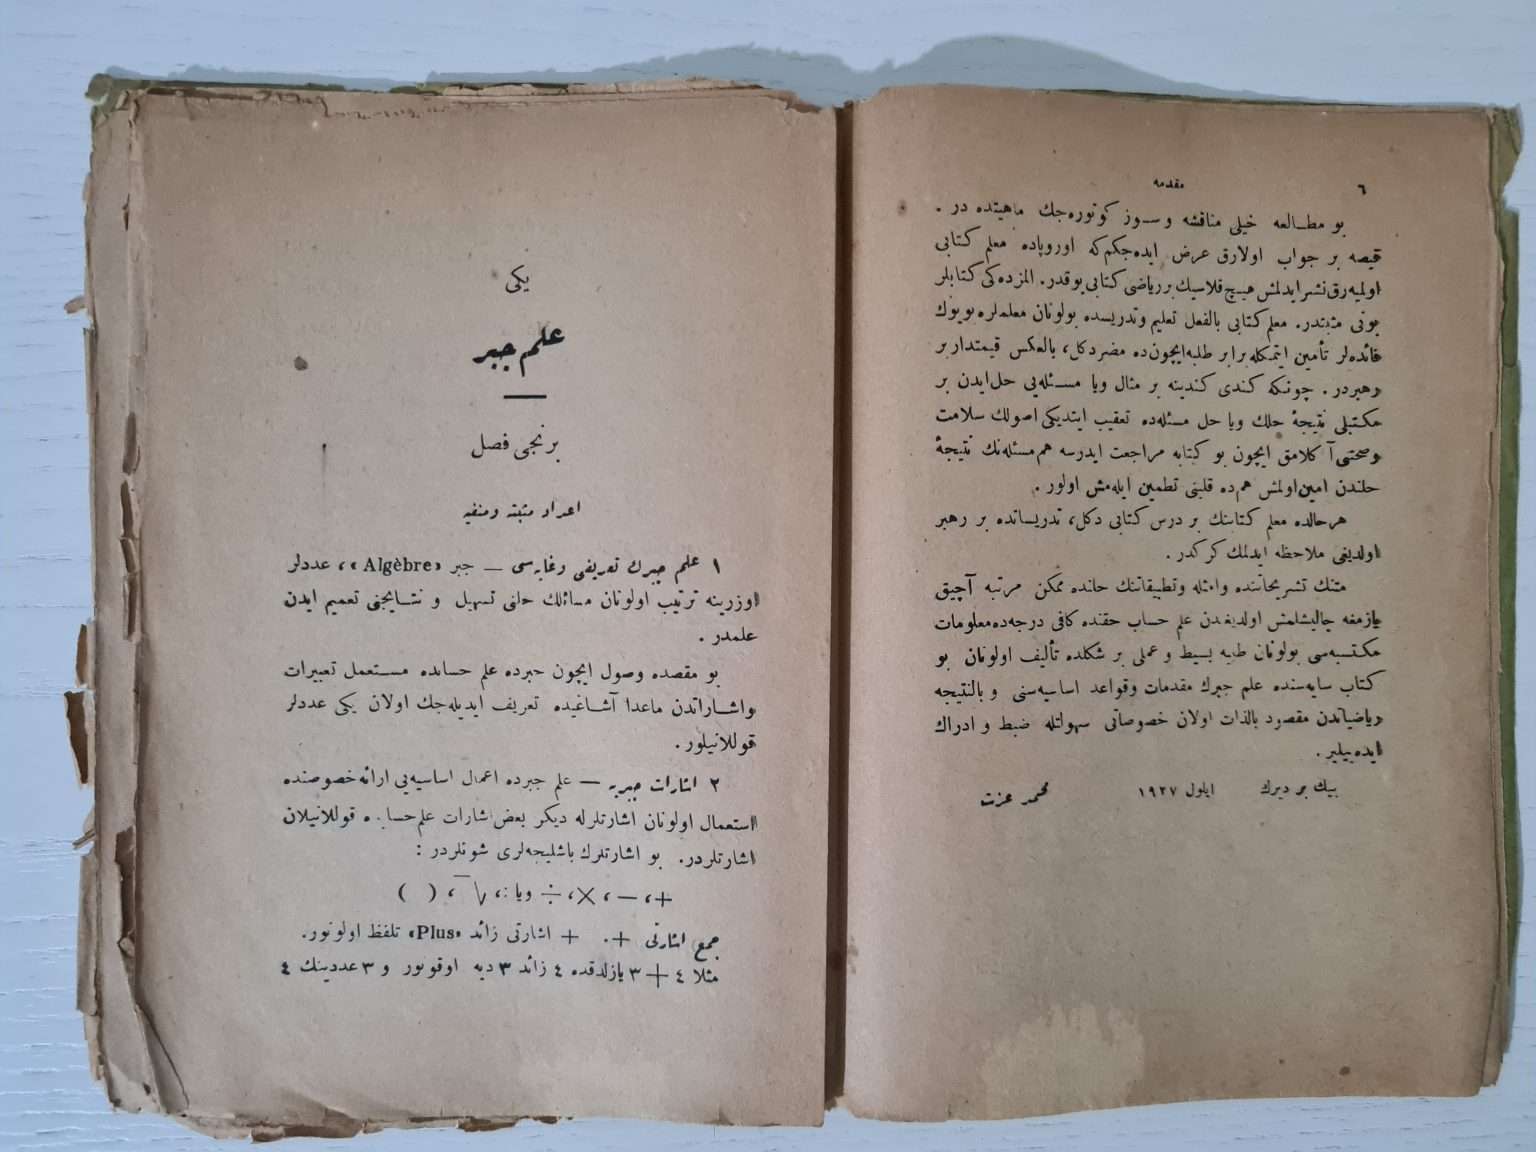 ٦
مقدمه
بو مطـالعه خیلی مناقشه وسـوز کوتوره‌جك ماهیتده در .
قیصه بر جواب اولارق عرض ایده‌جکم‌که اوروپاده معلم کتابی
اولمیه‌رق نشر ایدلمش هیـچ قلاسیك بر ریاضی کتابی یوقدر. المزده‌کی کتابلر
بونی مثبتدر. معلم کتابی بالفعل تعلیم وتدریسده بولونان معلملره بویوك
فائده‌لر تأمین ایتمکله برابر طلبه ایچون‌ده مضر دکل، بالعکس قیمتدار بر
رهبردر . چونکه کندی کندینه بر مثال ویا مسـئله‌یی حل ایدن بر
مکتبلی نتیجۀ حلك ویا حل مسئله‌ده تعقیب ایتدیکی اصولك سلامت
وصحتنی آکلامق ایچون بو کتابه مراجعت ایدرسه هم مسئله‌نك نتیجۀ
حلندن امین اولمش هم‌ده قلبنی تطمین ایله‌مش اولور .
هرحالده معلم کتابنك بر درس کتابی دکل، تدریساتده بر رهبر
اولدیغی ملاحظه ایدلمك کرکدر .
متنك تشریحاتنده وامثله وتطبیقاتنك حلنده ممکن مرتبه آچیق
یازمغه چالیشلمش اولدیغندن علم حساب حقنده کافی درجه‌ده معلومات
مکتسبه‌سی بولونان طلبه بسیط و عملی بر شکلده تألیف اولونان بو
کتاب سایه‌سنده علم جبرك مقدمات وقواعد اساسیه‌سنی و بالنتیجه
ریاضیاتدن مقصود بالذات اولان خصوصاتی سهولتله ضبط و ادراك
ایده‌بیلیر.
بیك بر دیرك ایلول ١٩٢٧ محمد عزت
یکی
علم جبر
برنجی فصل
اعداد مثبته ومنفیه
١ علم جبرك تعریفی وغایه‌سی — جبر «Algèbre»، عددلر
اوزرینه ترتیب اولونان مسائلك حلنی تسهیل و نتـایجنی تعمیم ایدن
علمدر .
بو مقصده وصول ایچون جبرده علم حسابده مسـتعمل تعبیرات
واشـاراتدن ماعدا آشـاغیده تعریف ایدیله‌جك اولان یکی عددلر
قوللانیلور.
٢ اشارات جبریه — علم جبرده اعمال اساسیه‌یی ارائه خصوصنده
استعمال اولونان اشارتلرله دیکر بعض اشارات علم حسابده قوللانیلان
اشارتلردر. بو اشارتلرك باشلیجه‌لری شونلردر :
+، —، ×، ÷ ویا :، √‾، ( )
جمع اشارتی +. + اشارتی زائد «Plus» تلفظ اولونور.
مثلا ٤ + ٣ یازلدقده ٤ زائد ٣ دیه اوقونور و ٣ عددینك ٤